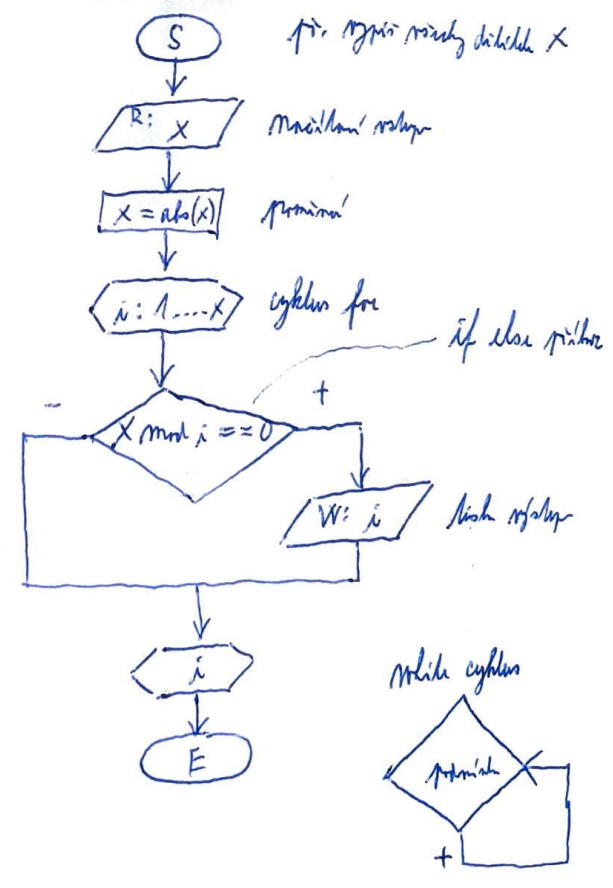 S
př. vypiš všechny dělitele X
R: X
načítání vstupu
X = abs(x)
i: 1....X
cyklus for
if else příkaz
-
+
X mod i == 0
W: i
tisk výstupu
i
while cyklus
E
podmínka
+